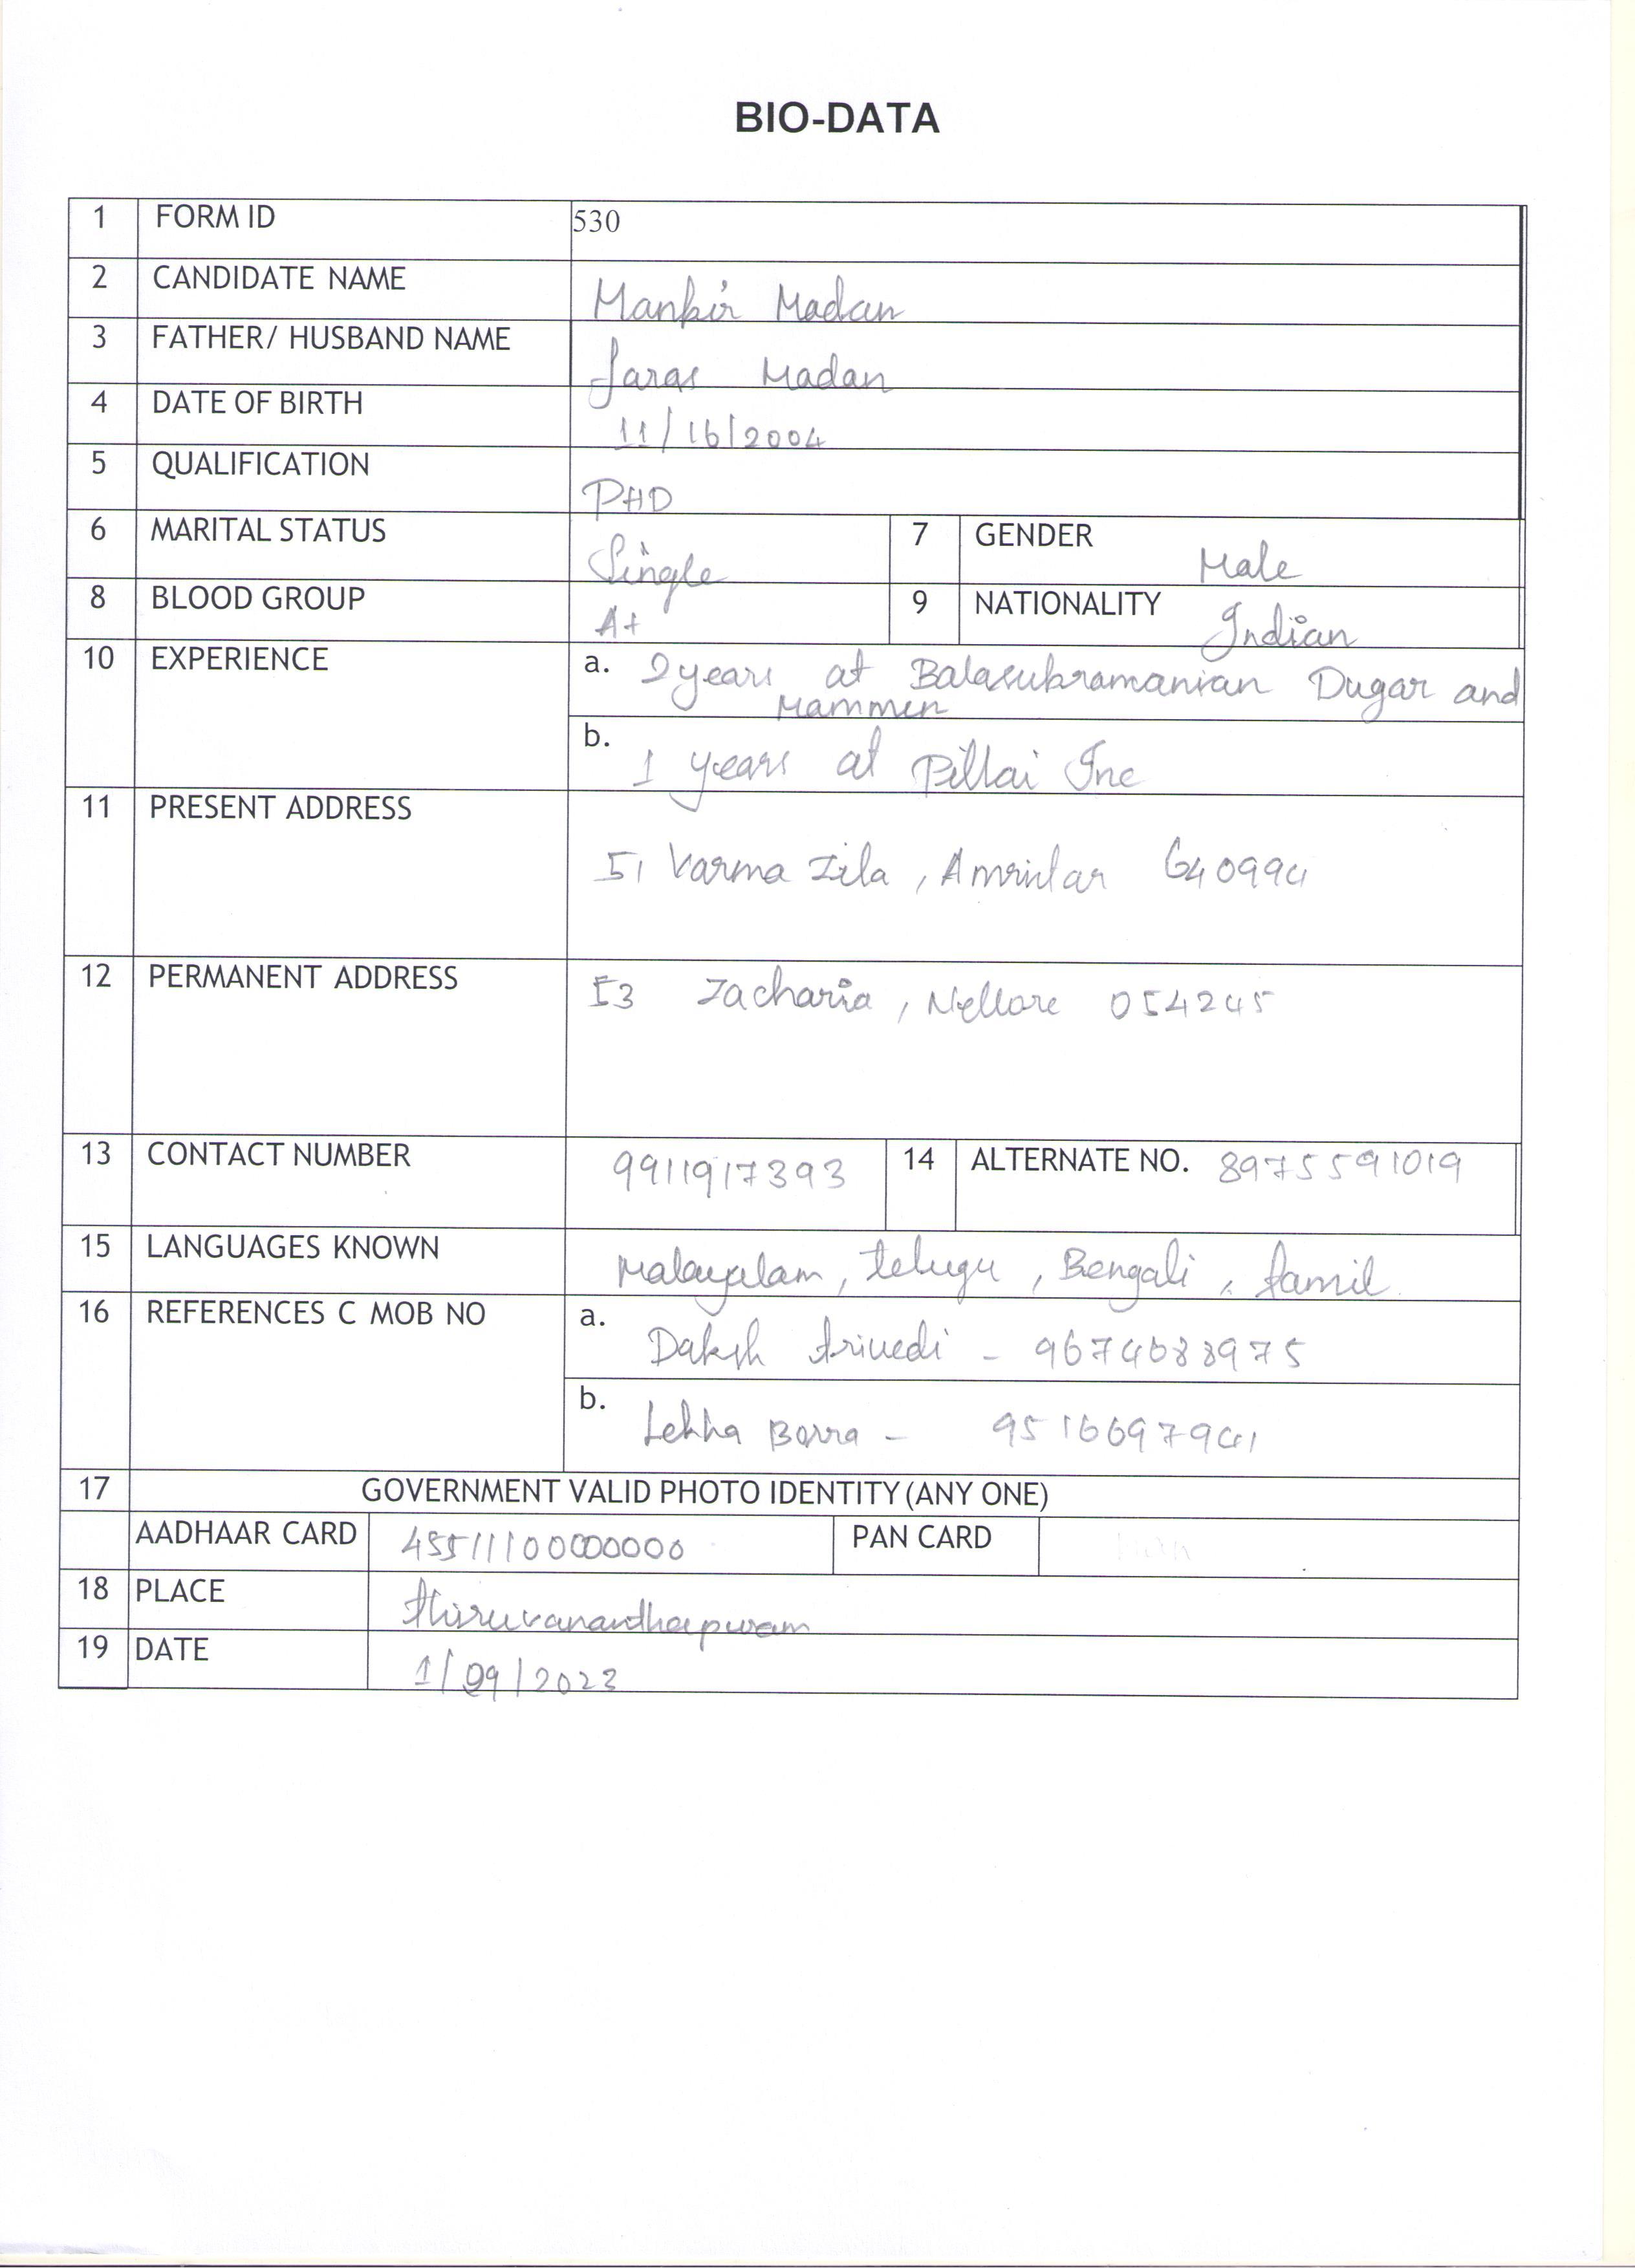 BIO-DATA
1 FORM ID 530
2 CANDIDATE NAME Mankir Madan
3 FATHER/ HUSBAND NAME Saras Madan
4 DATE OF BIRTH 11/16/2004
5 QUALIFICATION PHD
6 MARITAL STATUS Single 7 GENDER Male
8 BLOOD GROUP A+ 9 NATIONALITY Indian
10 EXPERIENCE a. 2 years at Balasubramanian Dugar and
Mammen
b. 1 years at Pillai Inc
11 PRESENT ADDRESS
51 Varma Zila, Amritsar 640994
12 PERMANENT ADDRESS 53 Zacharia, Nellore 054245
13 CONTACT NUMBER 9911917393 14 ALTERNATE NO. 8975591019
15 LANGUAGES KNOWN Malayalam, Telugu, Bengali, Tamil
16 REFERENCES C MOB NO a. Daksh Trivedi - 9674688975
b. Lekha Borra - 9516697941
17 GOVERNMENT VALID PHOTO IDENTITY(ANY ONE)
AADHAAR CARD 45511100000000 PAN CARD
18 PLACE Thiruvananthapuram
19 DATE 1/09/2023